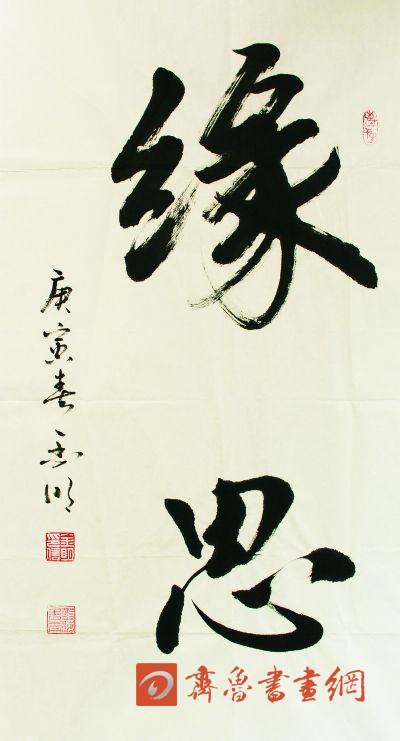 缘思
庚寅春
齊魯書畫網